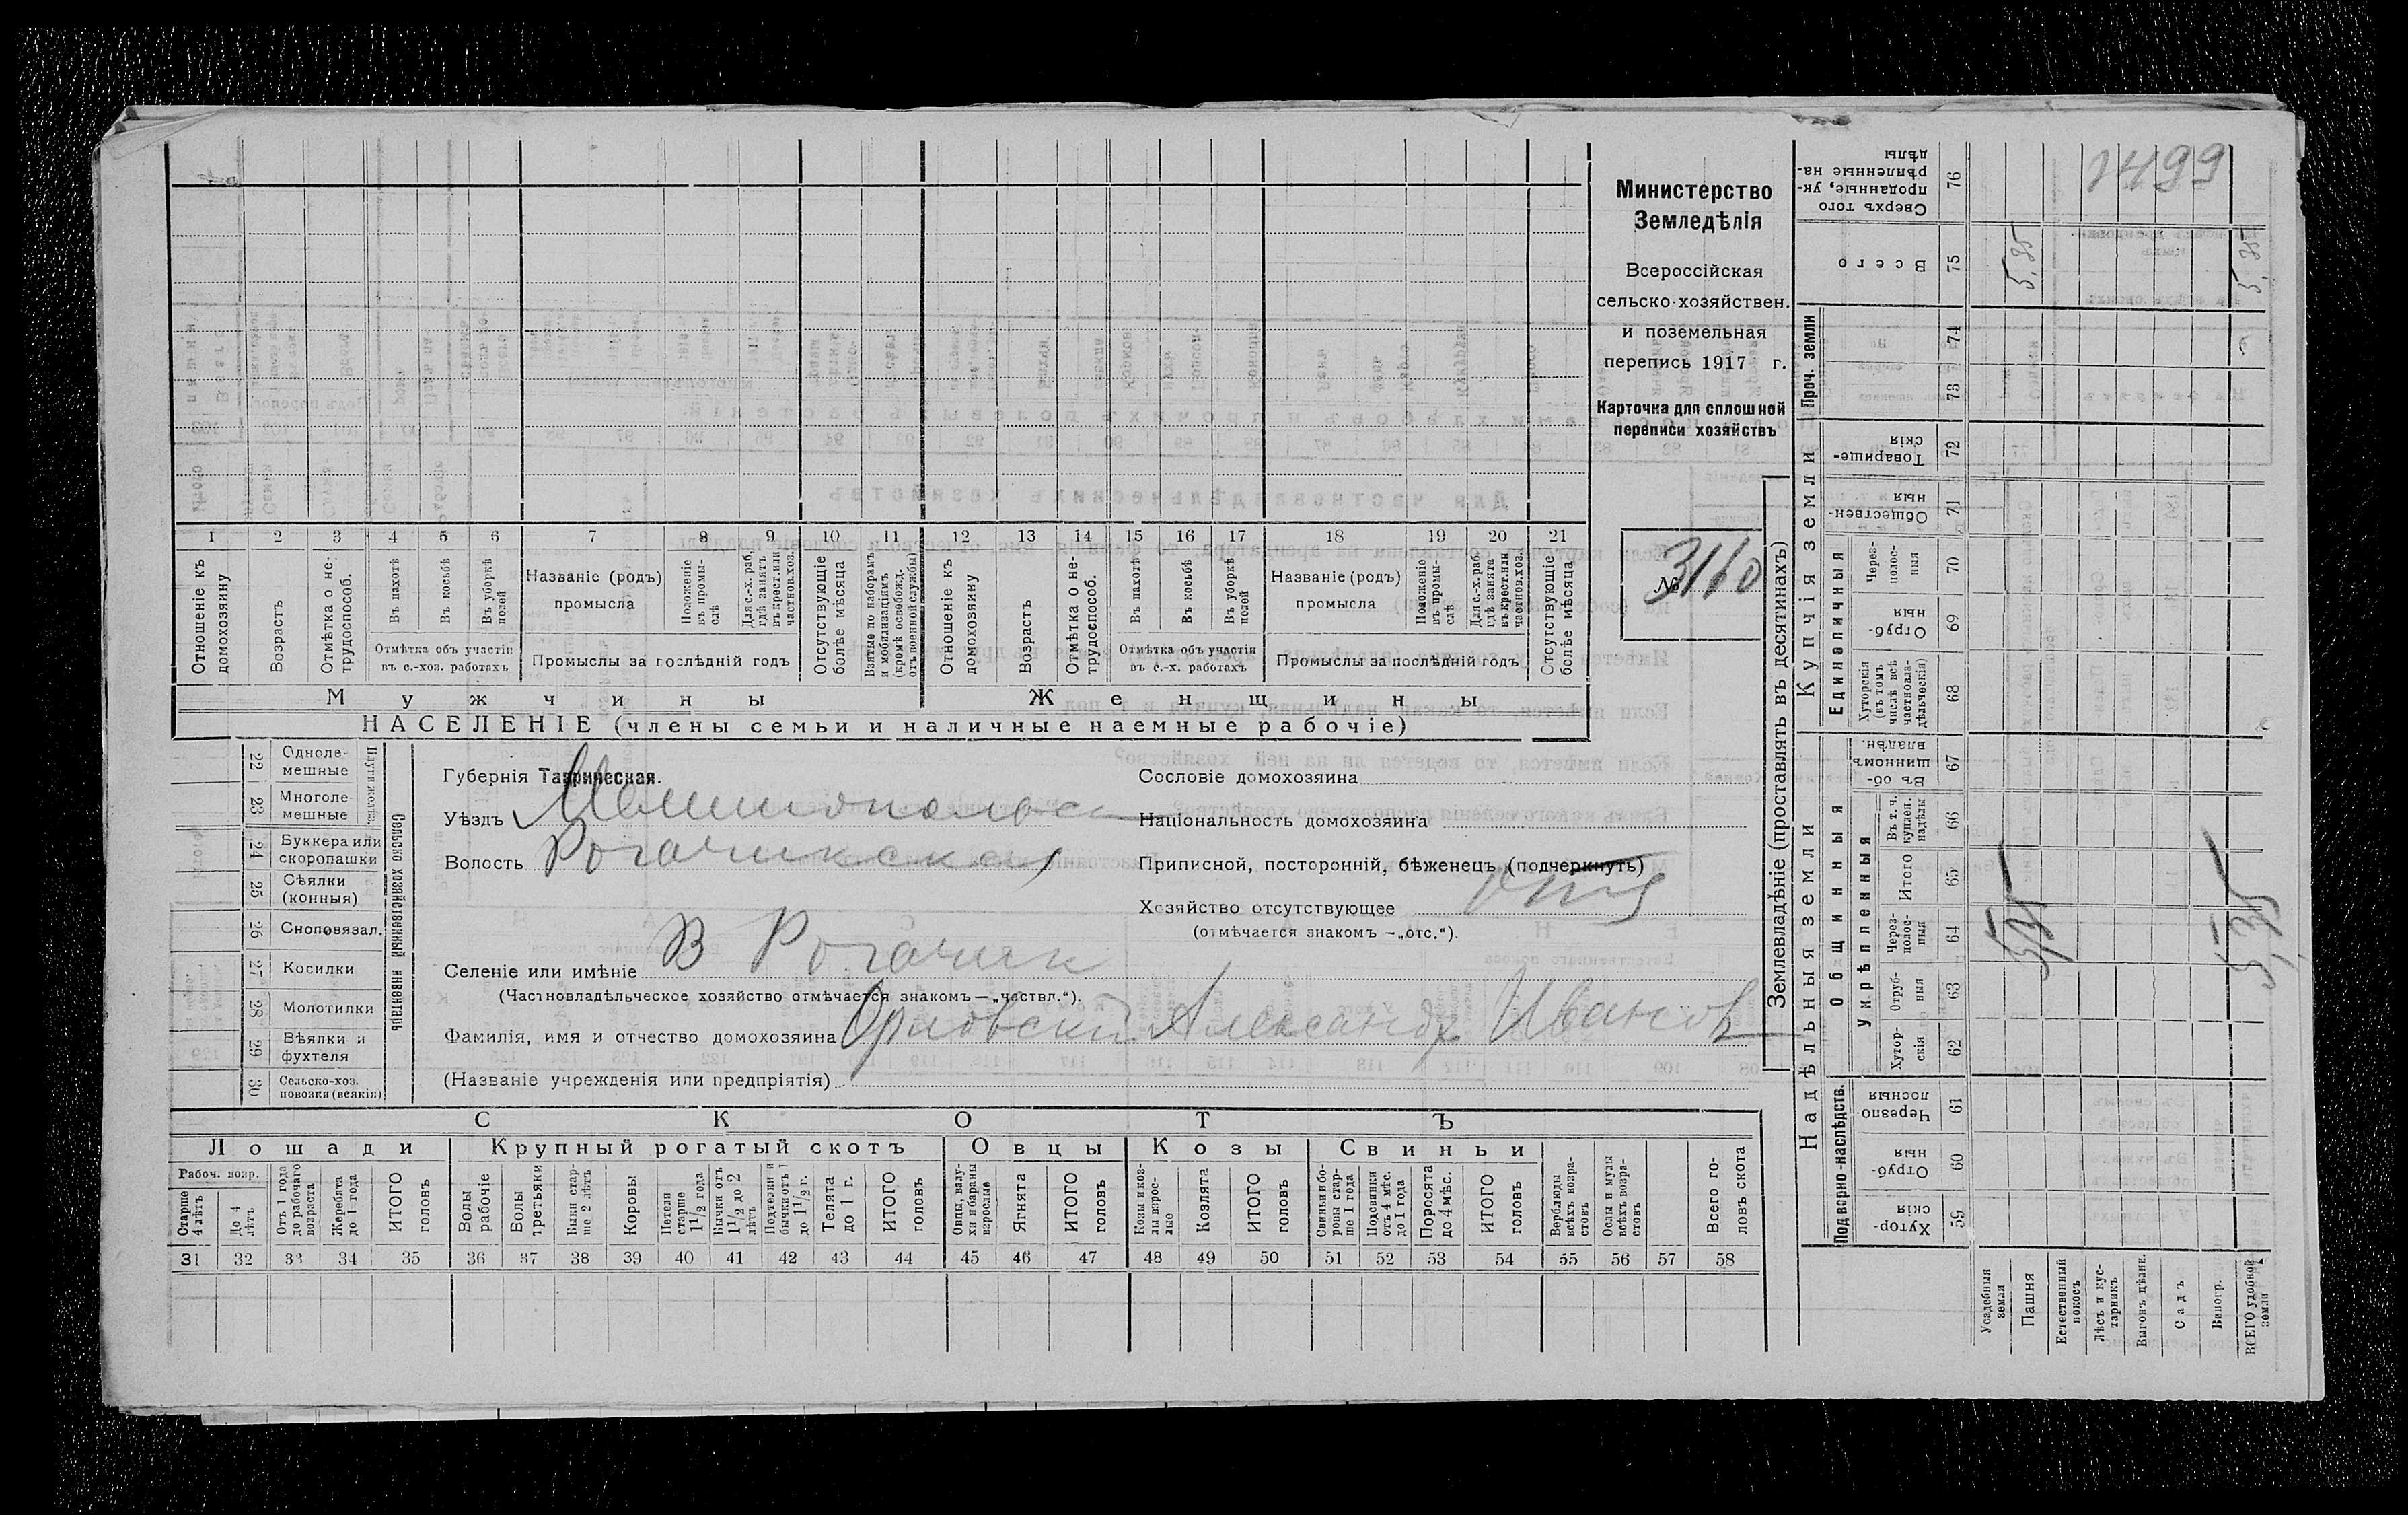 1499
Министерство
Земледѣлія
Всероссійская
сельско-хозяйствен.
и поземельная
перепись 1917 г.
Карточка для сплошной
переписи хозяйствъ
№ 3160
1 2 3 4 5 6 7 8 9 10 11 12 13 14 15 16 17 18 19 20 21
Отношеніе къ домохозяину
Возрастъ
Отмѣтка о не-трудоспособ.
Въ пахотѣ
Въ косьбѣ
Въ уборкѣ полей
Отмѣтка объ участіи въ с.-хоз. работахъ
Названіе (родъ) промысла
Положеніе въ промы-слѣ
Для с.-х. раб. гдѣ занятъ въ крест. или частнов. хоз.
Промыслы за послѣдній годъ
Отсутствующіе болѣе мѣсяца
Взятые по наборамъ и мобилизаціямъ (кромѣ освобожд. отъ военной службы)
Отношеніе къ домохозяину
Возрастъ
Отмѣтка о не-трудоспособ.
Въ пахотѣ
Въ косьбѣ
Въ уборкѣ полей
Отмѣтка объ участіи въ с.-х. работахъ
Названіе (родъ) промысла
Положеніе въ промы-слѣ
Для с.-х. раб. гдѣ занята въ крест. или частнов. хоз.
Промыслы за послѣдній годъ
Отсутствующіе болѣе мѣсяца
Мужчины Женщины
НАСЕЛЕНІЕ (члены семьи и наличные наемные рабочіе)
22 Одноле-мешные
23 Многоле-мешные
24 Буккера или скоропашки
25 Сѣялки (конныя)
26 Сноповязал.
27 Косилки
28 Молотилки
29 Вѣялки и фухтеля
30 Сельско-хоз. повозки (всякія)
Сельско хозяйственный инвентарь
Губернія Таврическая.
Уѣздъ Мелитопольск
Волость Рогачикская
Селеніе или имѣніе В Рогачик
(Частновладѣльческое хозяйство отмѣчается знакомъ — „частвл.“).
Фамилія, имя и отчество домохозяина Орловский Александр Иванов
(Названіе учрежденія или предпріятія)
Сословіе домохозяина
Національность домохозяина
Приписной, посторонній, бѣженецъ (подчеркнуть)
Хозяйство отсутствующее отс
(отмѣчается знакомъ —„отс.“).
СКОТЪ
Лошади Крупный рогатый скотъ Овцы Козы Свиньи
Рабоч. возр.
Старше 4 лѣтъ
До 4 лѣтъ
Отъ 1 года до рабочаго возраста
Жеребята до 1 года
ИТОГО головъ
Волы рабочіе
Волы третьяки
Быки стар-ше 2 лѣтъ
Коровы
Нетели старше 1 1/2 года
Бычки отъ 1 1/2 до 2 лѣтъ
Подтелки и бычки отъ 1 до 1 1/2 г.
Телята до 1 г.
ИТОГО головъ
Овцы, валу-хи и бараны взрослые
Ягнята
ИТОГО головъ
Козы и коз-лы взрос-лые
Козлята
ИТОГО головъ
Свиньи и бо-ровы стар-ше 1 года
Подсвинки отъ 4 мѣс. до 1 года
Поросята до 4 мѣс.
ИТОГО головъ
Верблюды всѣхъ возра-стовъ
Ослы и мулы всѣхъ возра-стовъ
Всего го-ловъ скота
31 32 33 34 35 36 37 38 39 40 41 42 43 44 45 46 47 48 49 50 51 52 53 54 55 56 57 58
Землевладѣніе (проставлять въ десятинахъ)
Надѣльныя земли Купчія земли Проч. земли
Подворно-наслѣдств.
Общинныя
Укрѣпленныя
Единоличныя
Хутор-скія 59
Отруб-ныя 60
Черезпо-лосныя 61
Хутор-скія 62
Отруб-ныя 63
Через-полос-ныя 64
Итого 65
Въ т. ч. куплен. надѣлы 66
Въ об-щинномъ владѣн. 67
Хуторскія (въ томъ числѣ всѣ частновла-дѣльческія) 68
Отруб-ныя 69
Через-полос-ныя 70
Обществен-ныя 71
Товарище-скія 72
73
74
Всего 75
Сверхъ того проданные, ук-рѣпленные на-дѣлы 76
Усадебныя земли
Пашня
Естественный покосъ
Лѣсъ и кус-тарникъ
Выгонъ цѣлин.
Садъ
Виногр.
ВСЕГО удобной земли
5,35
5,35